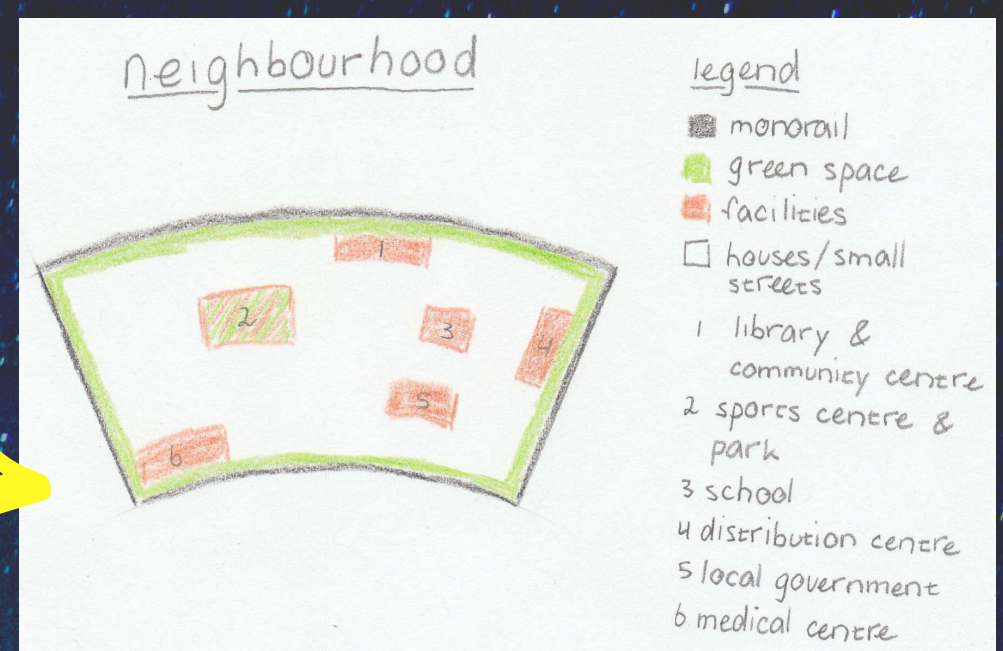 neighbourhood
1
2
3
4
5
6
legend
monorail
green space
facilities
houses/small
streets
1 library &
community centre
2 sports centre &
park
3 school
4 distribution centre
5 local government
6 medical centre